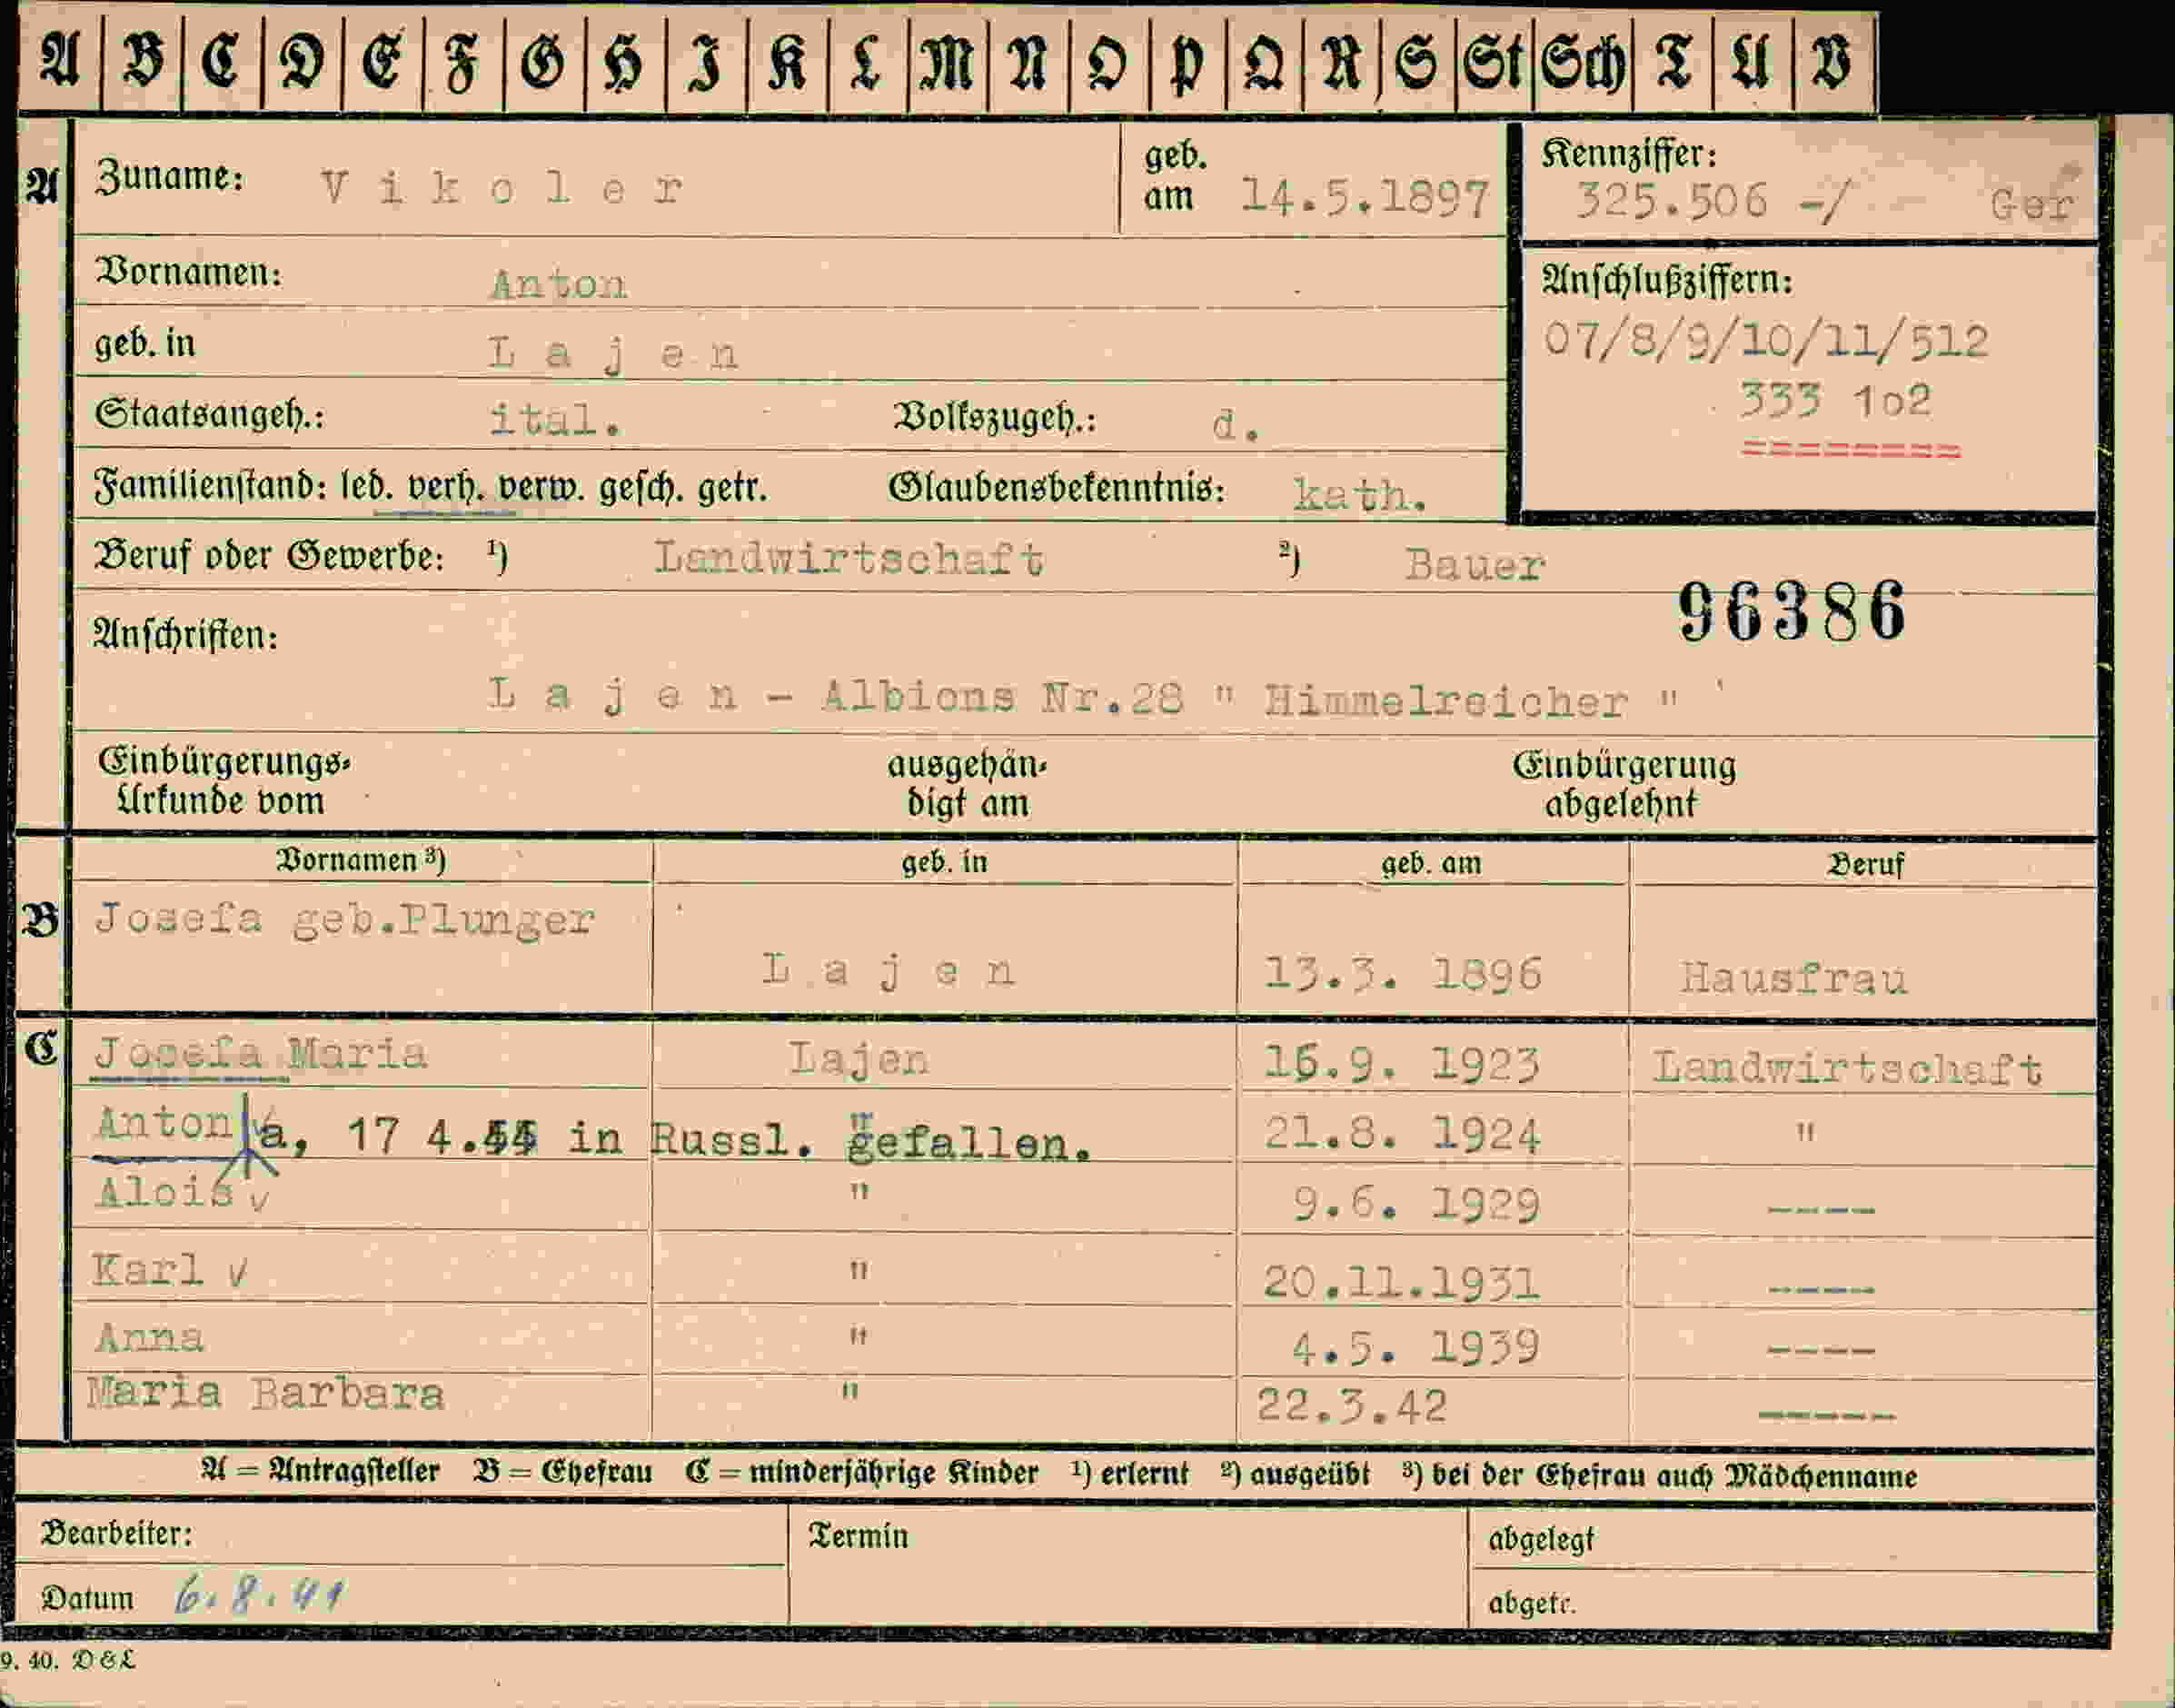 A B C D E F G H I K L M N O P Q R S St Sch T U V
A Zuname: Vikoler geb. am 14.5.1897 Kennziffer: 325.506 -/ Ger
Vornamen: Anton Anschlußziffern:
geb. in Lajen 07/8/9/10/11/512
Staatsangeh.: ital. Volkszugeh.: d. 333 1o2
Familienstand: led. verh. verw. gesch. getr. Glaubensbekenntnis: kath.
Beruf oder Gewerbe: ¹) Landwirtschaft ²) Bauer
96386
Anschriften:
Lajen - Albions Nr.28 " Himmelreicher "
Einbürgerungs- ausgehän- Einbürgerung
Urkunde vom digt am abgelehnt
Vornamen ³) geb. in geb. am Beruf
B Josefa geb.Plunger
Lajen 13.3. 1896 Hausfrau
C Josefa Maria Lajen 16.9. 1923 Landwirtschaft
Anton a, 17 4. in Russl. gefallen. " 21.8. 1924 "
Alois v " 9.6. 1929 ----
Karl v " 20.11.1931 ----
Anna " 4.5. 1939 ----
Maria Barbara " 22.3.42 -----
A = Antragsteller B = Ehefrau C = minderjährige Kinder ¹) erlernt ²) ausgeübt ³) bei der Ehefrau auch Mädchenname
Bearbeiter: Termin abgelegt
Datum 6.8.41 abgetr.
9. 40. D & L